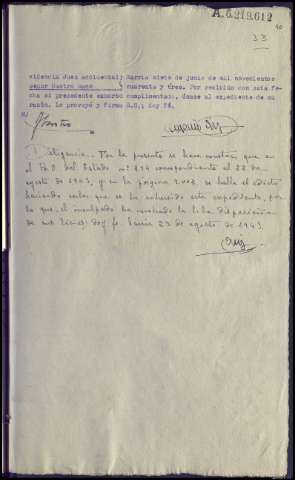 A.6219.612
33
videncia Juez accidental; Sarria siete de junio de mil novecientos
señor Castro cuarenta y tres. Por recibido con esta fe-
cha el precedente exhorto cumplimentado, únase al expediente de su
razón. Lo proveyó y firma S.Sª; doy fé.
Diligencia.- Por la presente se hace constar que en
el B.O. del Estado nº 234 correspondiente al 22 de
agosto de 1943, y en la página 2002 se halla el edicto
haciendo saber que se ha sobreseido este expediente, por
lo que el inculpado ha recobrado la libre disposición
de sus bienes; doy fe. Sarria 23 de agosto de 1943.